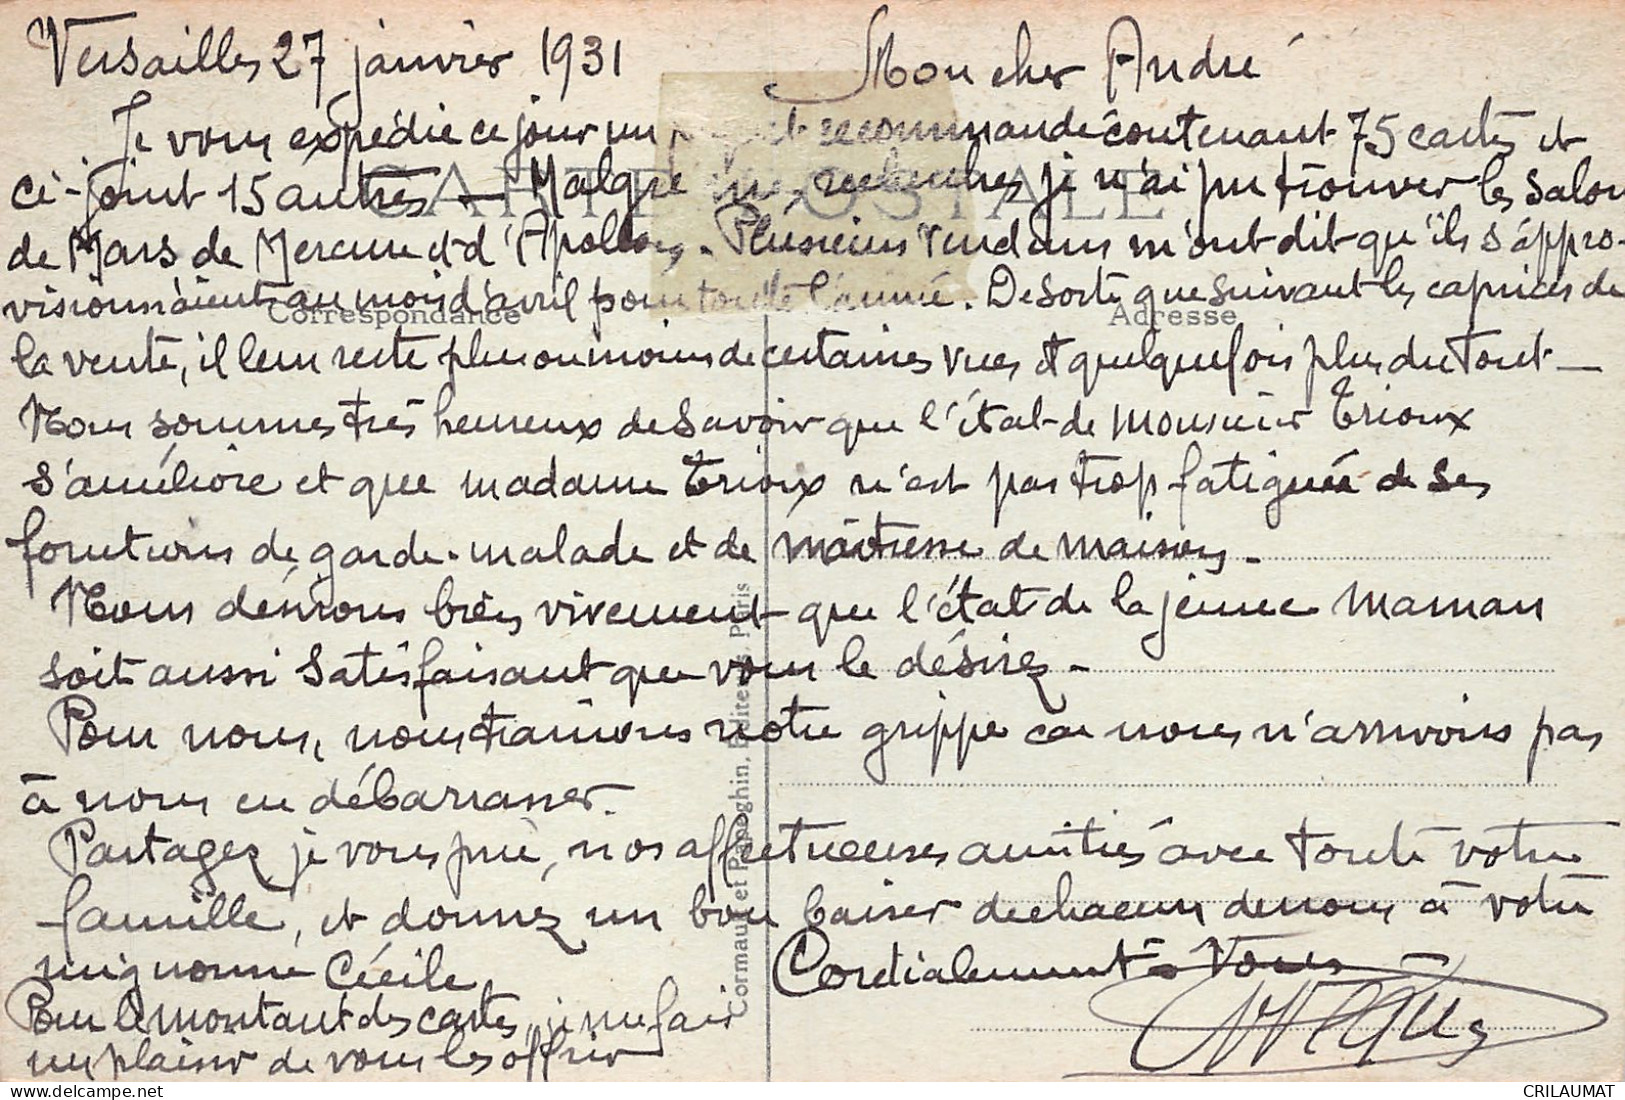 Versailles 27 janvier 1931 Mon cher André
Je vous expédie ce jour un paquet recommandé contenant 75 cartes et
ci-joint 15 autres — Malgré mes recherches je n'ai pu trouver le salon
de Mars de Mercure et d'Apollon. Plusieurs vendeurs m'ont dit qu'ils s'appro-
visionnaient au mois d'avril pour toute l'année. De sorte que suivant les caprices de
la vente, il leur reste plus ou moins de certaines vues et quelquefois plus du tout —
Nous sommes très heureux de savoir que l'état de Monsieur Trioux
s'améliore et que madame Trioux n'est pas trop fatiguée de ses
fonctions de garde-malade et de maîtresse de maison.
Nous désirons bien vivement que l'état de la jeune Maman
soit aussi satisfaisant que vous le désirez -
Pour nous, nous traînons notre grippe car nous n'arrivons pas
à nous en débarrasser.
Partagez je vous prie, nos affectueuses amitiés avec toute votre
famille, et donnez un bon baiser de chacun de nous à votre
mignonne Cécile. Cordialement à Vous —
Pour le montant des cartes, je me fais
un plaisir de vous les offrir
CARTE POSTALE
Correspondance Adresse
Cormault et Papoghin, Editeurs, Paris
CRILAUMAT